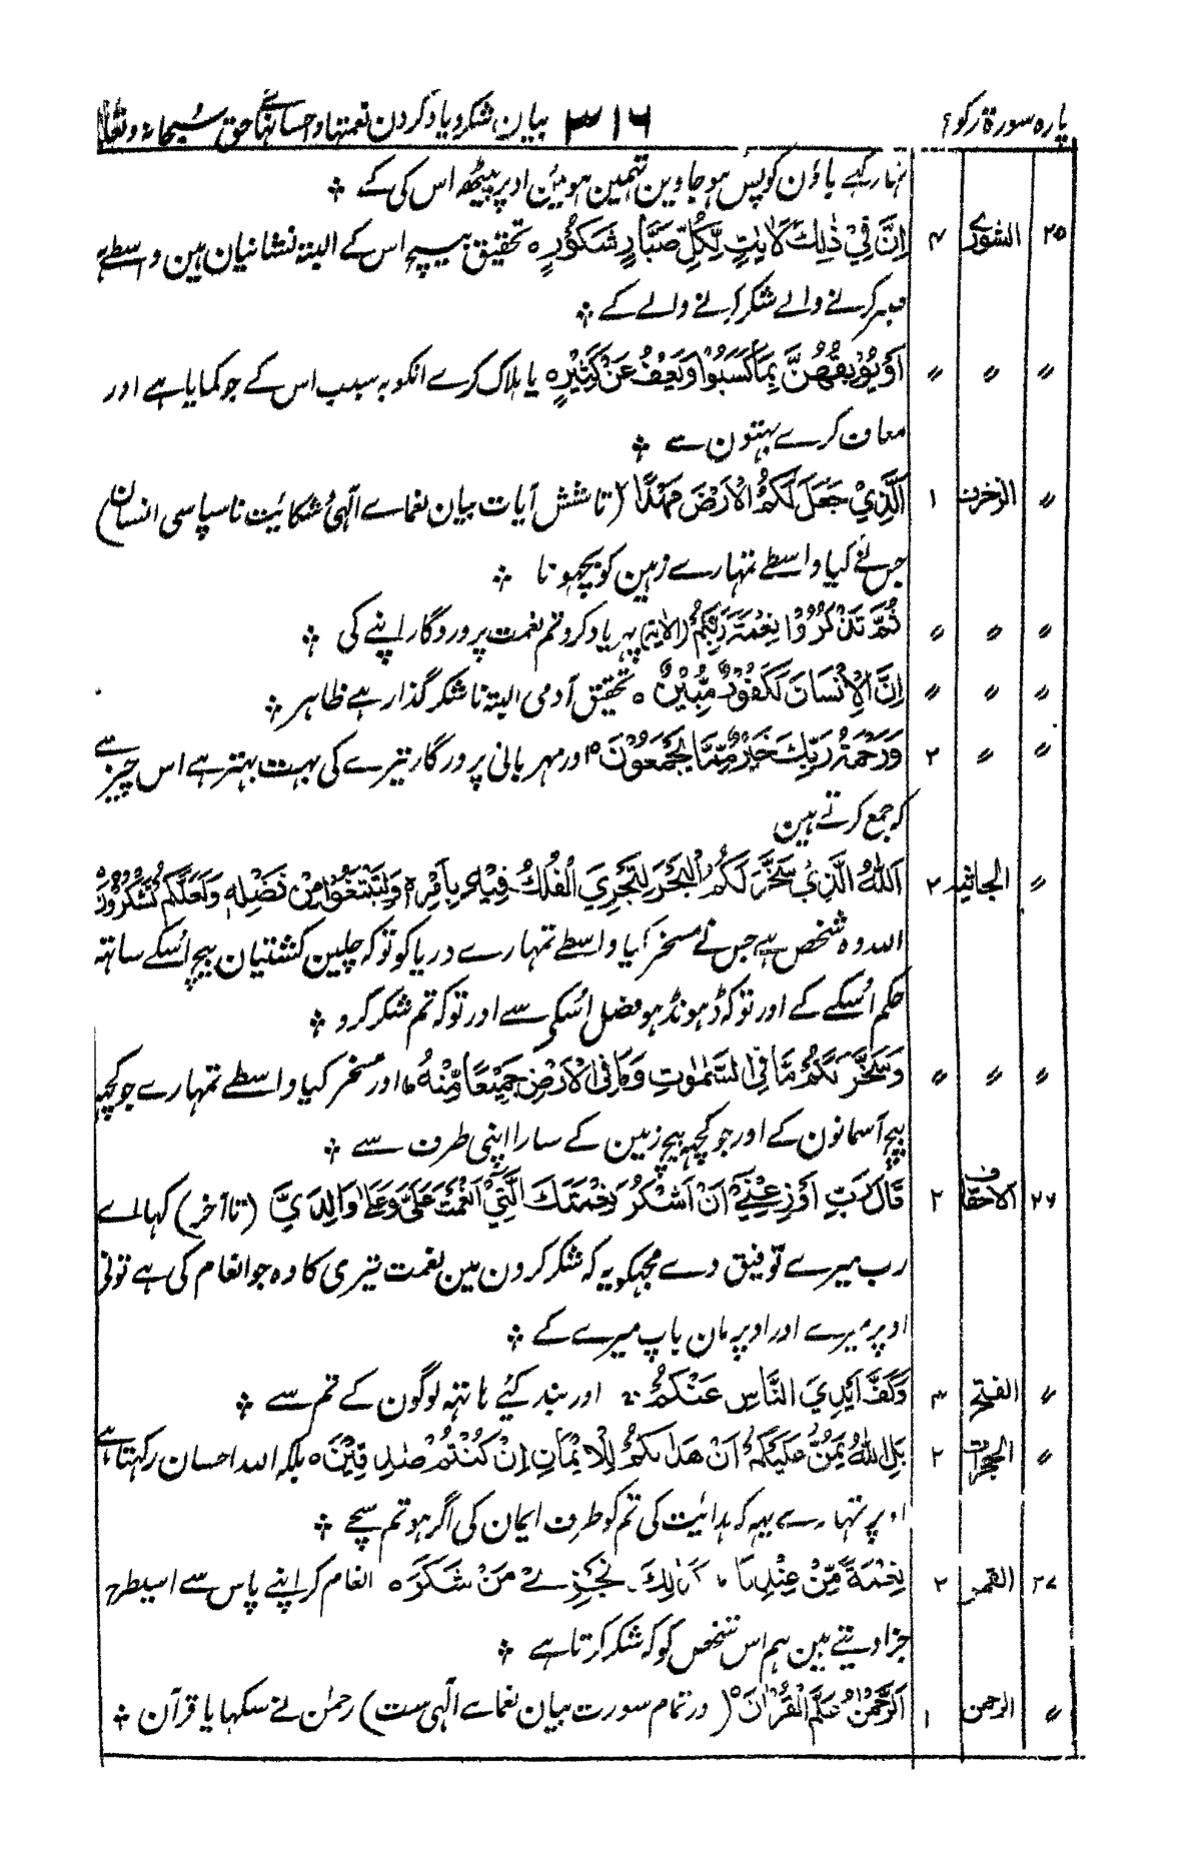 پارہ سورۃ رکوع ۳۱۶ بیان شکر و یاد کردن نعمتہا و احسانہائے حق سبحانہ و تعالیٰ
باؤن کو پس ہو جاوین تھمین ہوئین اوپر پیٹھ اس کی کے ۞
۲۵ الشوریٰ ۴ اِنَّ فِيْ ذٰلِكَ لَاٰيٰتٍ لِّكُلِّ صَبَّارٍ شَكُوْرٍ ہ تحقیق بیچ اس کے البتہ نشانیان ہین واسطے ہر
صبر کرنے والے شکر کرنے والے کے ۞
〃 〃 〃 اَوْ يُوْبِقْهُنَّ بِمَا كَسَبُوْا وَيَعْفُ عَنْ كَثِيْرٍ ہ یا ہلاک کرے انکو بہ سبب اس کے جو کمایا ہے اور
معاف کرے بہتون سے ۞
〃 الزخرف ۱ اَلَّذِيْ جَعَلَ لَكُمُ الْاَرْضَ مَهْدًا (تا شش آیات بیان نعماے آلہی و شکائیت ناسپاسی انسان)
جس نے کیا واسطے تمہارے زمین کو بچھونا ۞
〃 〃 〃 ثُمَّ تَذْكُرُوْا نِعْمَةَ رَبِّكُمْ (الآیۃ) پہر یاد کرو تم نعمت پروردگار اپنے کی ۞
〃 〃 〃 اِنَّ الْاِنْسَانَ لَكَفُوْرٌ مُّبِيْنٌ ہ تحقیق آدمی البتہ ناشکر گذار ہے ظاہر ۞
〃 〃 ۲ وَرَحْمَةُ رَبِّكَ خَيْرٌ مِّمَّا يَجْمَعُوْنَ ہ اور مہربانی پرورگار تیرے کی بہت بہتر ہے اس چیز سے
کہ جمع کرتے ہین
〃 الجاثیہ ۲ اَللهُ الَّذِيْ سَخَّرَ لَكُمُ الْبَحْرَ لِتَجْرِيَ الْفُلْكُ فِيْهِ بِاَمْرِهٖ وَلِتَبْتَغُوْا مِنْ فَضْلِهٖ وَلَعَلَّكُمْ تَشْكُرُوْنَ
اللہ وہ شخص ہے جس نے مسخر کیا واسطے تمہارے دریا کو تو کہ چلین کشتیان بیچ اسکے ساتہ
حکم اسکے کے اور تو کہ ڈہونڈہو فضل اسکی سے اور تو کہ تم شکر کرو ۞
〃 〃 〃 وَسَخَّرَ لَكُمْ مَّا فِي السَّمٰوٰتِ وَمَا فِي الْاَرْضِ جَمِيْعًا مِّنْهُ ہ اور مسخر کیا واسطے تمہارے جو کچہہ
بیچ آسمانون کے اور جو کچہہ بیچ زمین کے سارا اپنی طرف سے ۞
۲۶ الاحقاف ۲ قَالَ رَبِّ اَوْزِعْنِيْ اَنْ اَشْكُرَ نِعْمَتَكَ الَّتِيْ اَنْعَمْتَ عَلَيَّ وَعَلٰى وَالِدَيَّ (تا آخر) کہا اے
رب میرے توفیق دے مجہکو یہ کہ شکر کرون مین نعمت تیری کا وہ جو انعام کی ہے تونی
اوپر میرے اور اوپر مان باپ میرے کے ۞
〃 الفتح ۳ وَكَفَّ اَيْدِيَ النَّاسِ عَنْكُمْ ہ اور بند کیئے ہاتہہ لوگون کے تم سے ۞
〃 الحجرات ۲ بَلِ اللهُ يَمُنُّ عَلَيْكُمْ اَنْ هَدٰىكُمْ لِلْاِيْمَانِ اِنْ كُنْتُمْ صٰدِقِيْنَ ہ بلکہ اللہ احسان رکہتا ہے
اوپر تمہارے یہہ کہ ہدائیت کی تم کو طرف ایمان کی اگر ہو تم سچے ۞
۲۷ القمر ۲ نِعْمَةً مِّنْ عِنْدِنَا ہ كَذٰلِكَ نَجْزِيْ مَنْ شَكَرَ ہ انعام کر اپنے پاس سے اسیطرح
جزا دیتے ہین ہم اس شخص کو کہ شکر کرتا ہے ۞
〃 الرحمن ۱ اَلرَّحْمٰنُ عَلَّمَ الْقُرْاٰنَ ہ (در تمام سورت بیان نعماے آلہی ست) رحمن نے سکہایا قرآن ۞